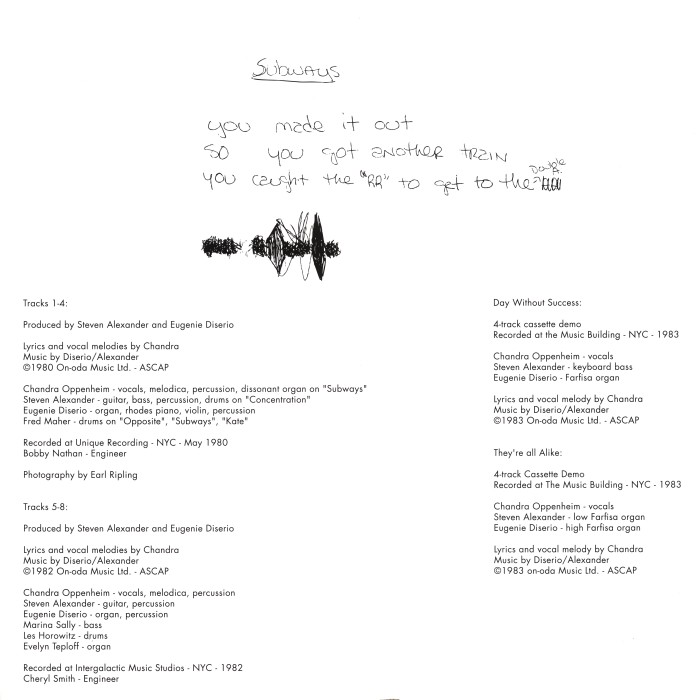 Subways
you made it out
so you got another train
you caught the "RR" to get to the Double A.
Tracks 1-4:
Produced by Steven Alexander and Eugenie Diserio
Lyrics and vocal melodies by Chandra
Music by Diserio/Alexander
©1980 On-oda Music Ltd. - ASCAP
Chandra Oppenheim - vocals, melodica, percussion, dissonant organ on "Subways"
Steven Alexander - guitar, bass, percussion, drums on "Concentration"
Eugenie Diserio - organ, rhodes piano, violin, percussion
Fred Maher - drums on "Opposite", "Subways", "Kate"
Recorded at Unique Recording - NYC - May 1980
Bobby Nathan - Engineer
Photography by Earl Ripling
Tracks 5-8:
Produced by Steven Alexander and Eugenie Diserio
Lyrics and vocal melodies by Chandra
Music by Diserio/Alexander
©1982 On-oda Music Ltd. - ASCAP
Chandra Oppenheim - vocals, melodica, percussion
Steven Alexander - guitar, percussion
Eugenie Diserio - organ, percussion
Marina Sally - bass
Les Horowitz - drums
Evelyn Teploff - organ
Recorded at Intergalactic Music Studios - NYC - 1982
Cheryl Smith - Engineer
Day Without Success:
4-track cassette demo
Recorded at the Music Building - NYC - 1983
Chandra Oppenheim - vocals
Steven Alexander - keyboard bass
Eugenie Diserio - Farfisa organ
Lyrics and vocal melody by Chandra
Music by Diserio/Alexander
©1983 On-oda Music Ltd. - ASCAP
They're all Alike:
4-track Cassette Demo
Recorded at The Music Building - NYC - 1983
Chandra Oppenheim - vocals
Steven Alexander - low Farfisa organ
Eugenie Diserio - high Farfisa organ
Lyrics and vocal melody by Chandra
Music by Diserio/Alexander
©1983 on-oda Music Ltd. - ASCAP